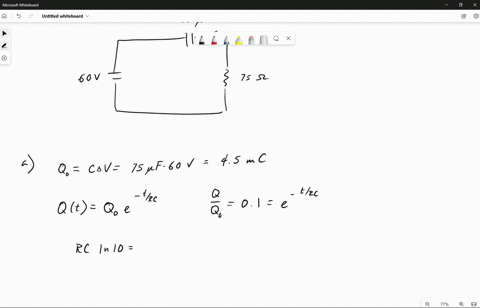 Microsoft Whiteboard
Untitled whiteboard
60V
75 Ω
a)
Q₀ = CΔV = 75 μF · 60 V = 4.5 mC
Q(t) = Q₀ e^(-t/RC)    Q/Q₀ = 0.1 = e^(-t/RC)
RC ln 10 =
77%